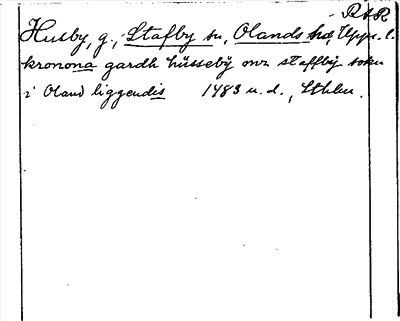 RAR
Husby, g., Stafby sn, Olands hd, Upps. l.
kronona gardh hüsseby̋ om staffby̋ sokn
i Oland liggendis 1483 u. d., Sthlm.